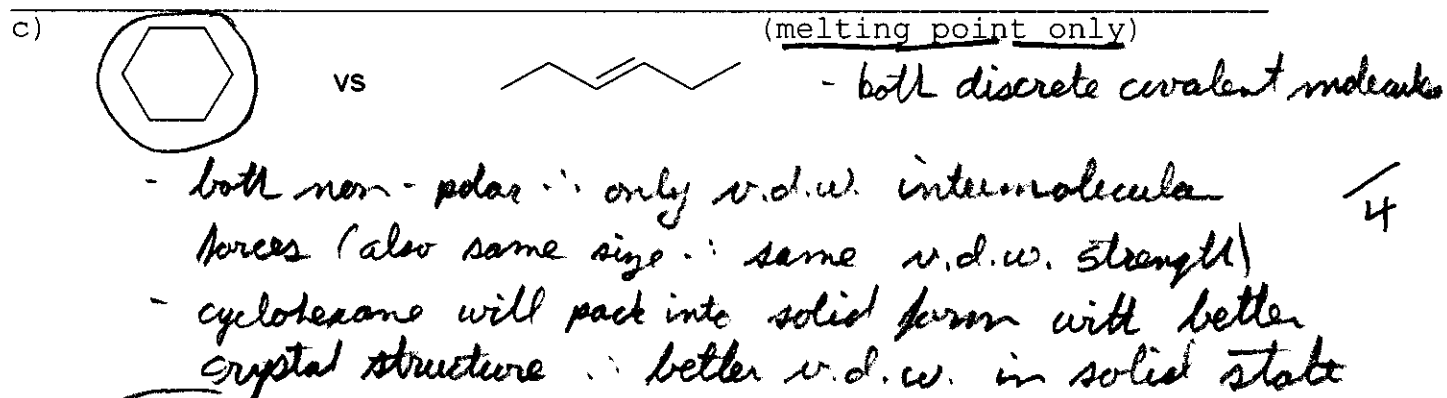 c) (melting point only)
vs - both discrete covalent molecules
- both non-polar ∴ only v.d.w. intermolecular
forces (also same size ∴ same v.d.w. strength)
/4
- cyclohexane will pack into solid form with better
crystal structure ∴ better v.d.w. in solid state